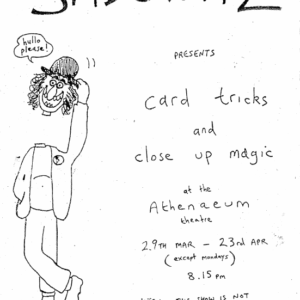 hullo
please!
PRESENTS
card tricks
and
close up magic
at the
Athenaeum
theatre
29TH MAR - 23rd APR
(except mondays)
8.15pm
SHOW IS NOT